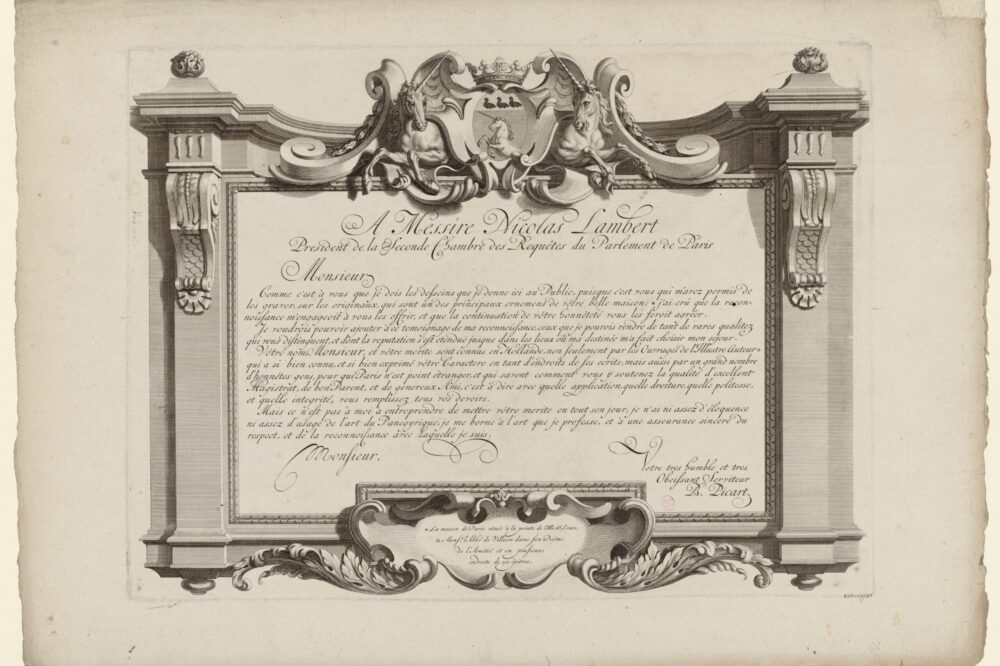 A Messire Nicolas Lambert
President de la Seconde Chambre des Requêtes du Parlement de Paris
Monsieur
Comme c'est à vous que je dois les desseins que je donne ici au Public, puisque c'est vous qui m'avez permis de
les graver, sur les originaux, qui sont un des principaux ornemens de vôtre belle maison; j'ai crû que la recon-
noissance m'engageoit à vous les offrir, et que la continuation de vôtre honnêteté vous les feroit agréer.
Je voudrois pouvoir ajouter à ce temoignage de ma reconnoissance, ceux que je pourois rendre de tant de rares qualitez
qui vous distinguent, et dont la reputation s'est étendue jusque dans les lieux où ma destinée m'a fait choisir mon sejour.
Vôtre nom, Monsieur, et vôtre merite sont connus en Hollande, non seulement par les Ouvrages de l'Illustre Auteur
qui a si bien connu, et si bien exprimé vôtre Caractere en tant d'endroits de ses écrits, mais aussi par un grand nombre
d'honnêtes gens, pour qui Paris n'est point étranger, et qui savent comment vous y soutenez la qualité d'excellent
Magistrat, de bon Parent, et de genereux Ami, c'est à dire avec quelle application, quelle droiture, quelle politesse,
et quelle integrité, vous remplissez tous vos devoirs.
Mais ce n'est pas à moi à entreprendre de mettre vôtre merite en tout son jour, je n'ai ni assez d'éloquence
ni assez d'usage de l'art du Panegyrique; je me borne à l'art que je professe, et à une asseurance sincere du
respect, et de la reconnoissance avec laquelle je suis,
Monsieur.
Votre tres humble et tres
Obeissant Serviteur
B. Picart
La maison de Paris située à la pointe de l'Isle St. Louis.
Monsr. l'Abbé de Villiers dans son Poëme
de l'Amitié et en plusieurs
endroits de ses epitres.